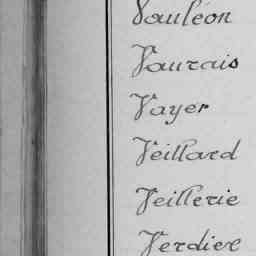 Vauléon
Vaurais
Vayer
Veillard
Veillerie
Verdier